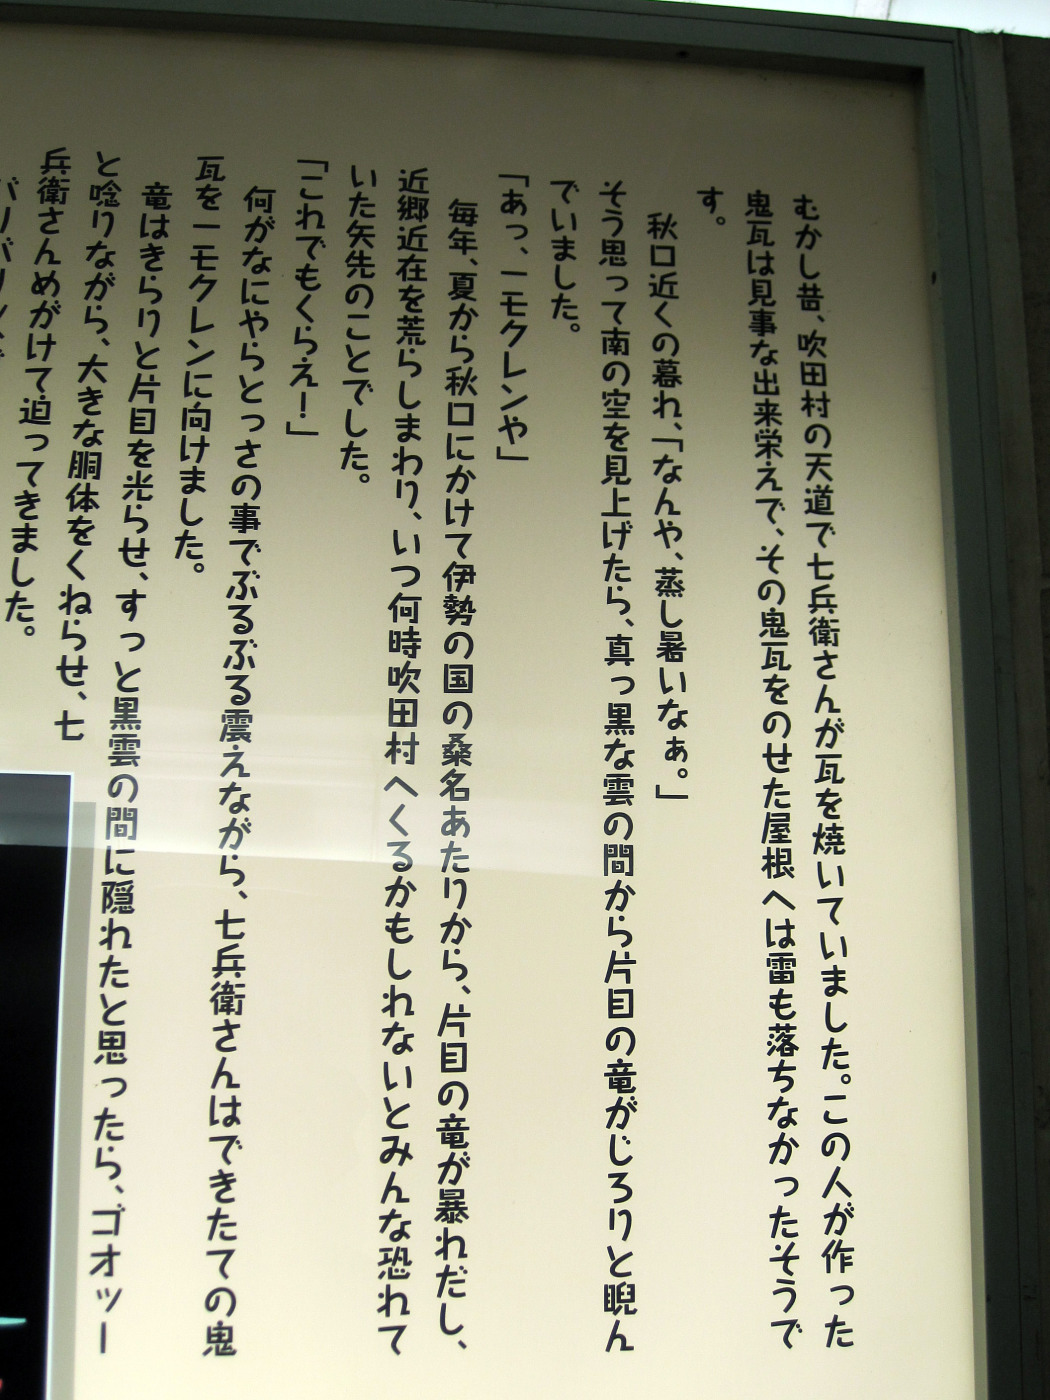 むかし昔、吹田村の天道で七兵衛さんが瓦を焼いていました。この人が作った
鬼瓦は見事な出来栄えで、その鬼瓦をのせた屋根へは雷も落ちなかったそうで
す。
秋口近くの暮れ、「なんや、蒸し暑いなぁ。」
そう思って南の空を見上げたら、真っ黒な雲の間から片目の竜がじろりと睨ん
でいました。
「あっ、一モクレンや」
毎年、夏から秋口にかけて伊勢の国の桑名あたりから、片目の竜が暴れだし、
近郷近在を荒らしまわり、いつ何時吹田村へくるかもしれないとみんな恐れて
いた矢先のことでした。
「これでもくらえ！」
何がなにやらとっさの事でぶるぶる震えながら、七兵衛さんはできたての鬼
瓦を一モクレンに向けました。
竜はきらりと片目を光らせ、すっと黒雲の間に隠れたと思ったら、ゴオッー
と唸りながら、大きな胴体をくねらせ、七
兵衛さんめがけて迫ってきました。
バリバリ